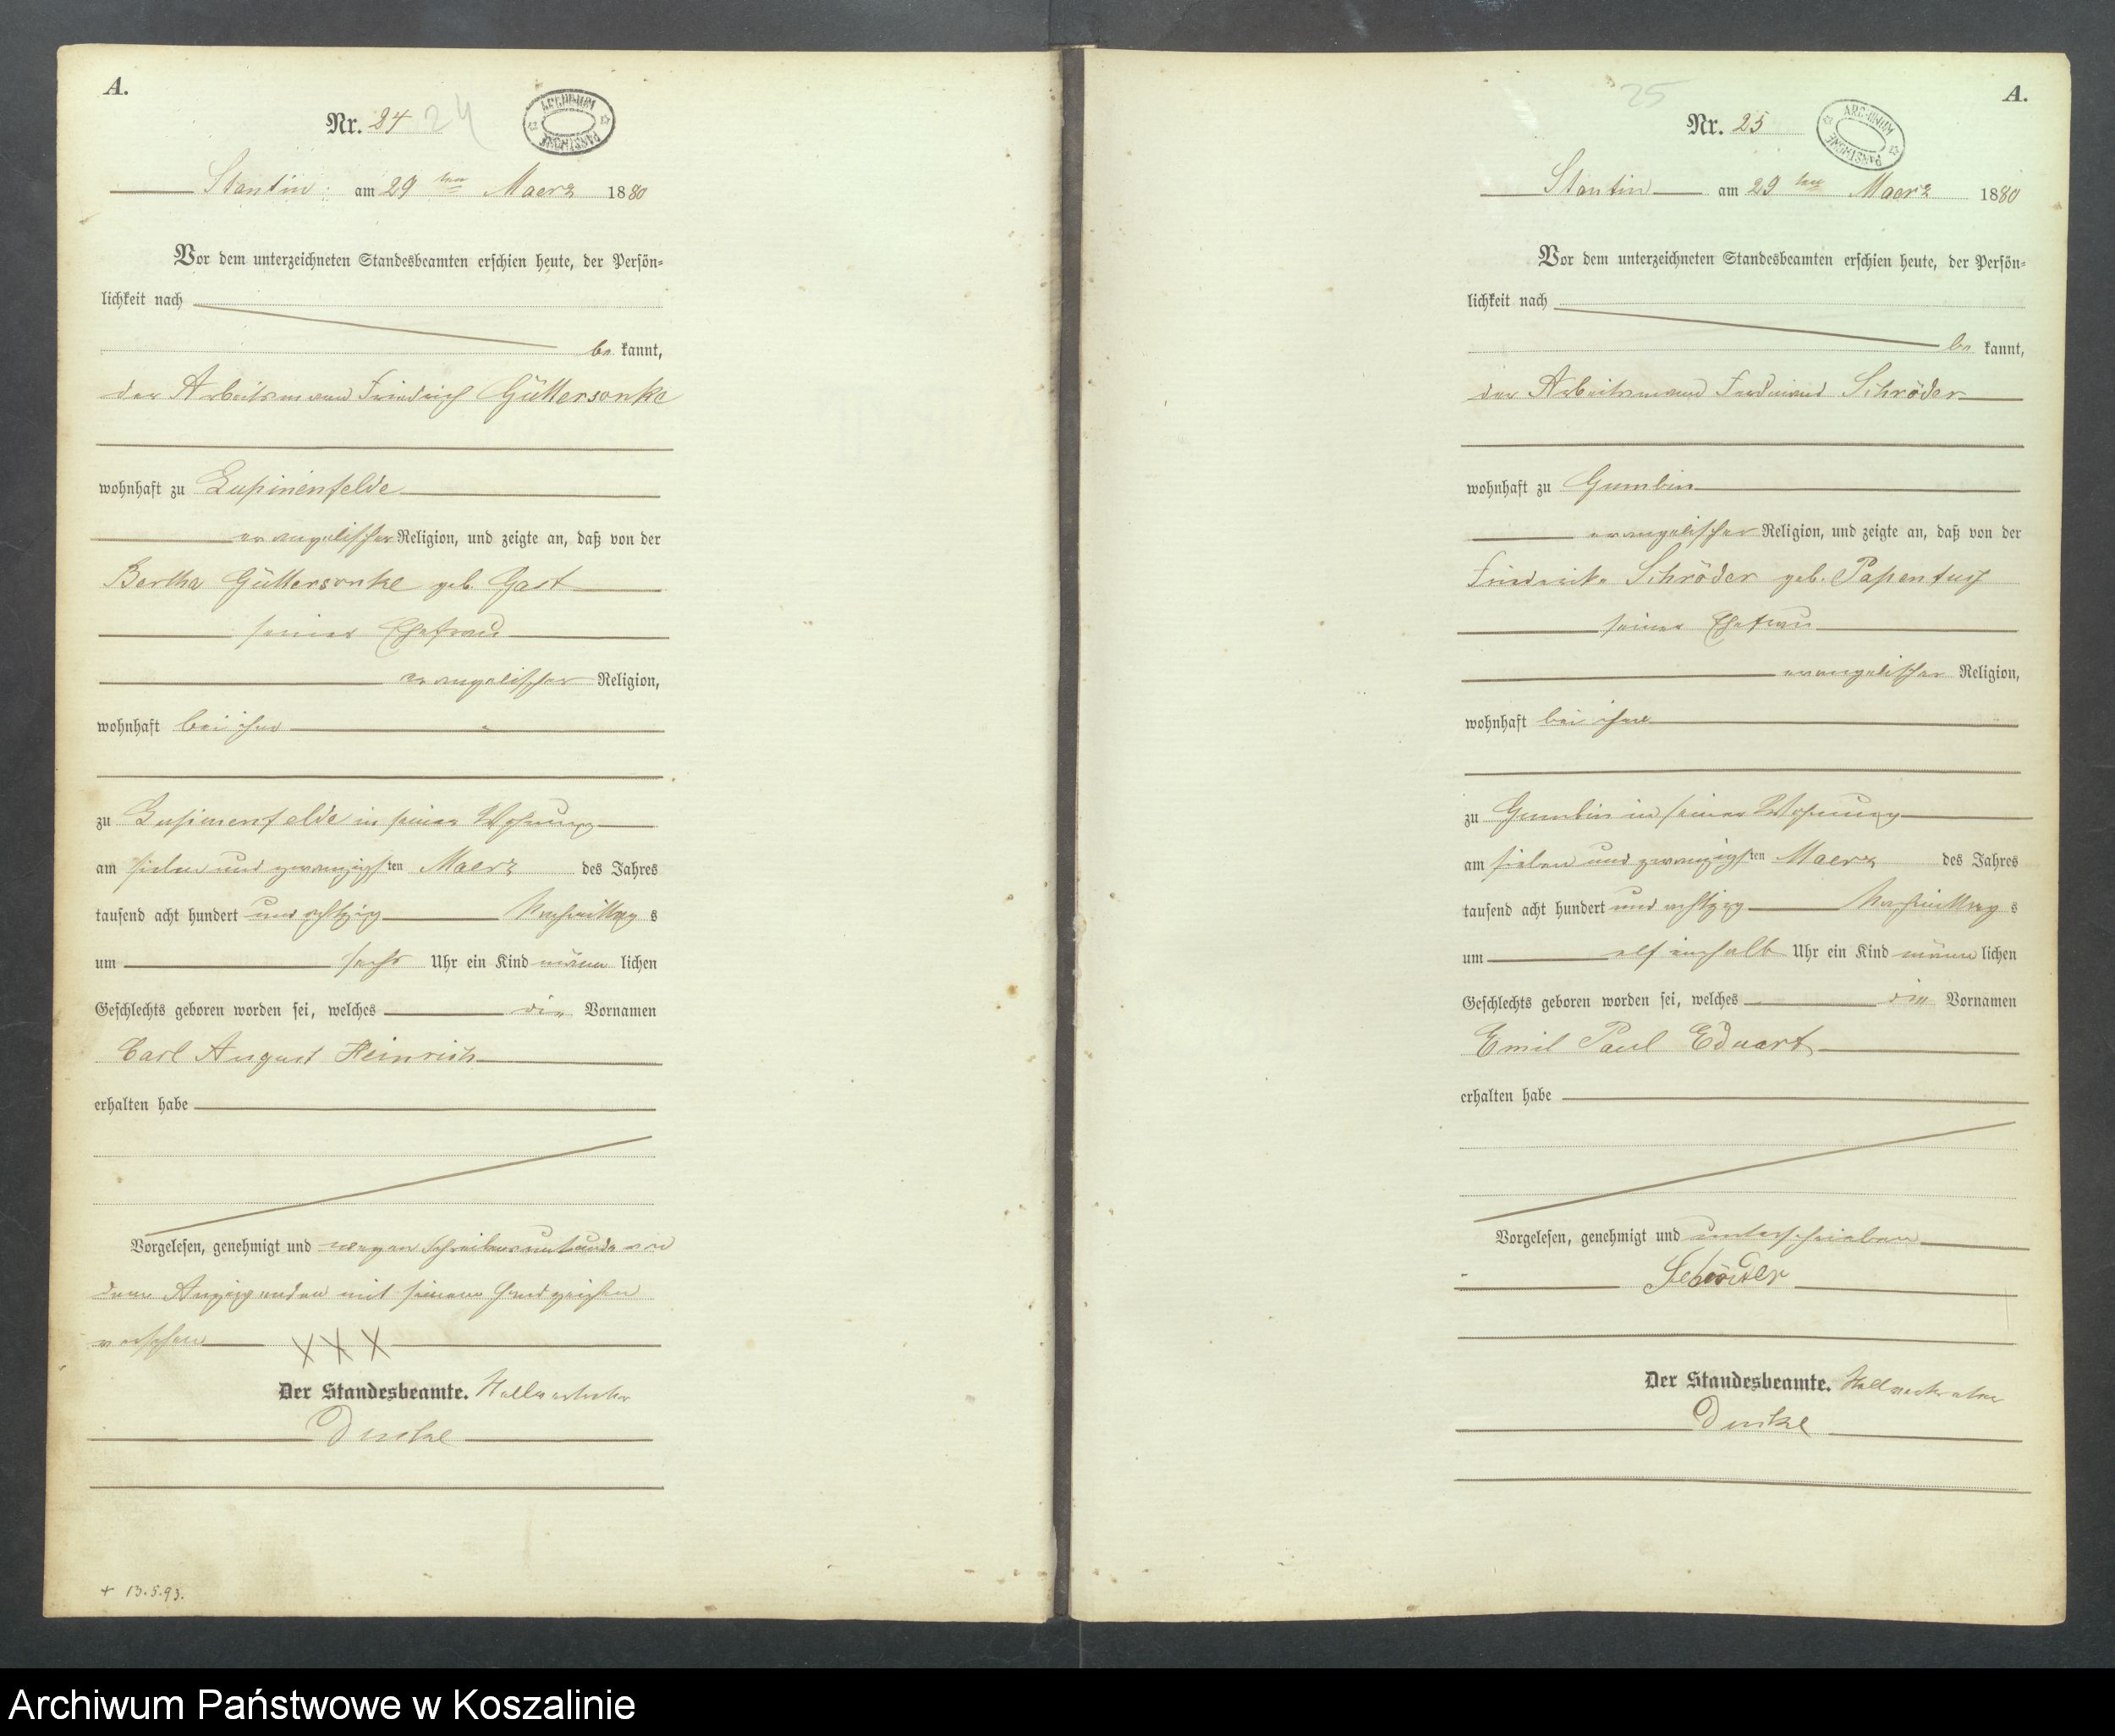 A.
Nr. 24 24
ARCHIWUM PAŃSTWOWE
Stantin am 29 ten Maerz 1880
Vor dem unterzeichneten Standesbeamten erschien heute, der Persön-
lichkeit nach
be kannt,
der Arbeitsmann Friedrich Güttersonke
wohnhaft zu Lupinenfelde
evangelischer Religion, und zeigte an, daß von der
Bertha Güttersonke geb. Gast
seiner Ehefrau
evangelischer Religion,
wohnhaft bei ihm
zu Lupinenfelde in seiner Wohnung
am sieben und zwanzigsten Maerz des Jahres
tausend acht hundert und achtzig Nachmittags
um sechs Uhr ein Kind männlichen
Geschlechts geboren worden sei, welches die Vornamen
Carl August Heinrich
erhalten habe
Vorgelesen, genehmigt und wegen Schreibensunkunde von
dem Anzeigenden mit seinem Handzeichen
versehen XXX
Der Standesbeamte.
+ 13.5.93.
25
A.
Nr. 25
ARCHIWUM PAŃSTWOWE
Stantin am 29 ten Maerz 1880
Vor dem unterzeichneten Standesbeamten erschien heute, der Persön-
lichkeit nach
be kannt,
der Arbeitsmann Ferdinand Schröder
wohnhaft zu Gumbin
evangelischer Religion, und zeigte an, daß von der
Friederike Schröder geb. Papenfus
seiner Ehefrau
evangelischer Religion,
wohnhaft bei ihm
zu Gumbin in seiner Wohnung
am sieben und zwanzigsten Maerz des Jahres
tausend acht hundert und achtzig Nachmittags
um elf einhalb Uhr ein Kind männlichen
Geschlechts geboren worden sei, welches die Vornamen
Emil Paul Eduart
erhalten habe
Vorgelesen, genehmigt und unterschrieben
Schröder
Der Standesbeamte.
Archiwum Państwowe w Koszalinie